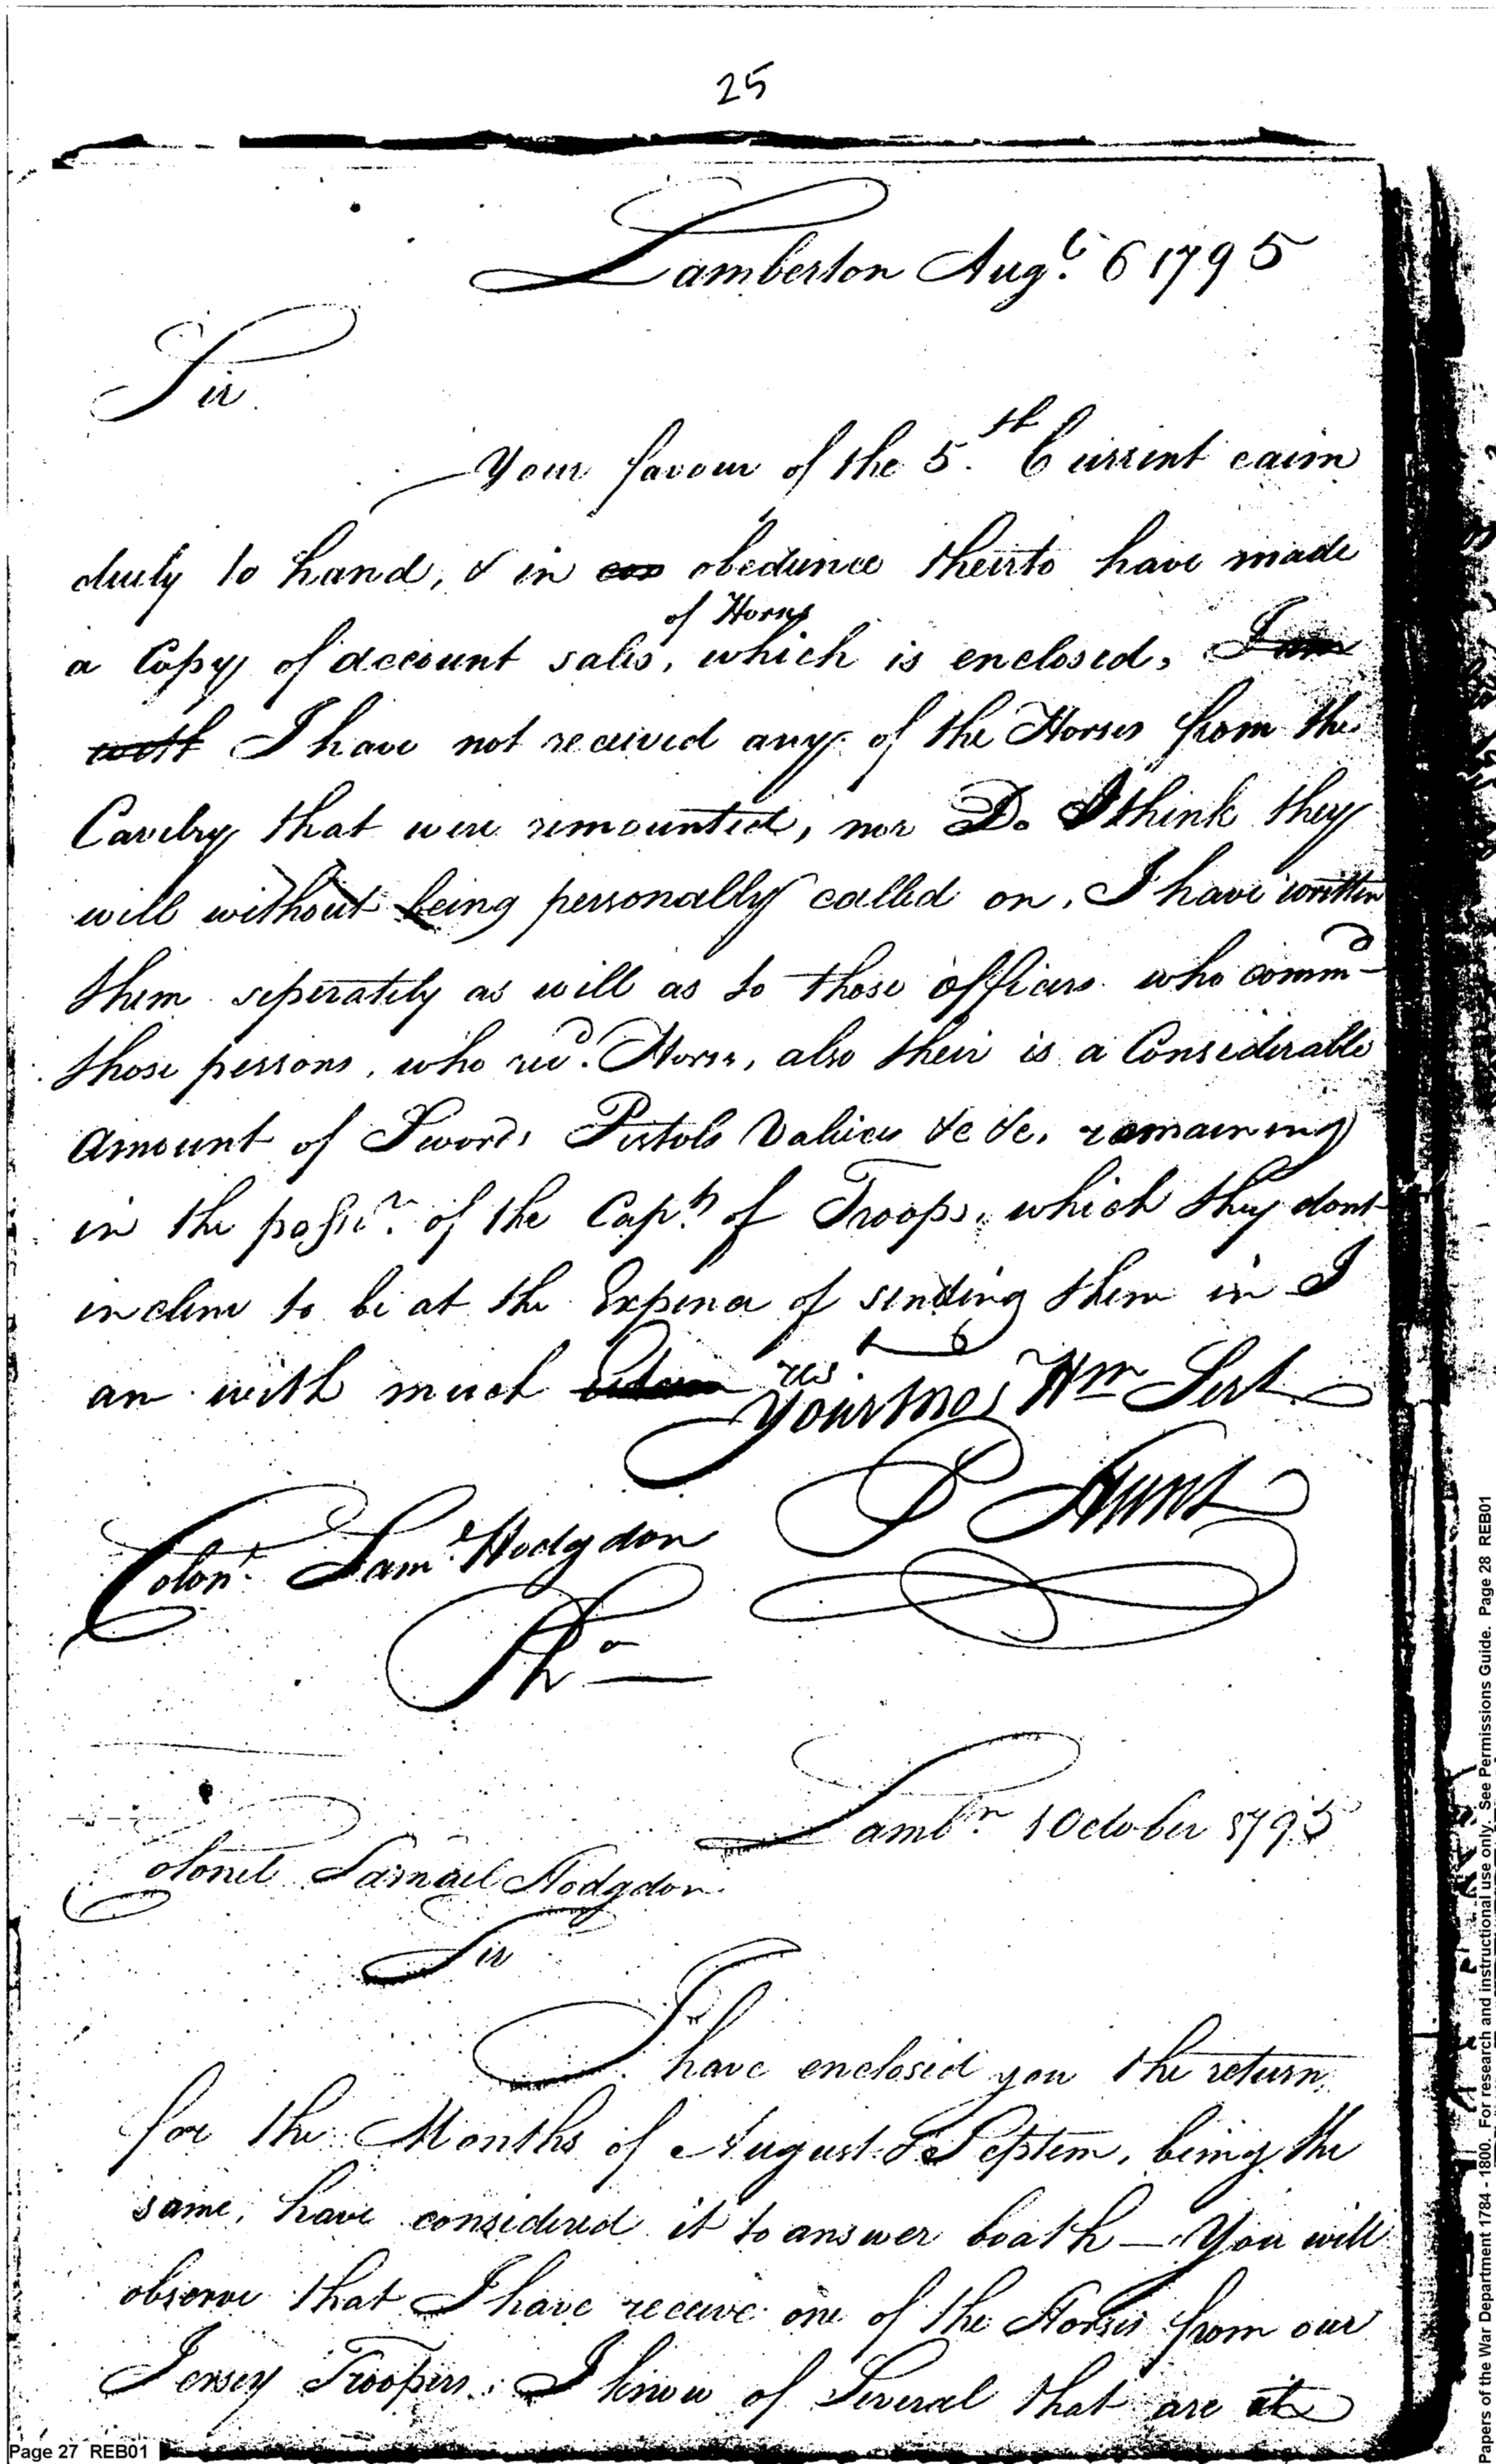 25
Lamberton Augt. 6 1795
Sir
Your favour of the 5th. Current caim
duely to hand, & in con obedience theirto have made
of Horses
a Copy of account sales, which is enclosed, I am
with I have not received any of the Horses from the
Cavelry that were remounted, nor Do I think they
will without being personally called on, I have written
them seperately as well as to those officers who commd
those persons, who recd. Horses, also their is a Considerable
amount of Swords Pistols Valices &c &c, remaining
in the possn. of the Capts of Troops, which they dont
incline to be at the Expence of sending them in I
am with much res
Yours Hm Sert
P Hunt
Colonl. Saml. Hodgdon
Pha
Lambn. 1 October 1795
Colonel Samuel Hodgdon
Sir
I have enclosed you the return
for the Months of August & Septem, being the
same, have considered it to answer boath — You will
observe that I have receive one of the Horses from our
Jersey Troopers, I know of Several that are at
Page 27 REB01
Papers of the War Department 1784 - 1800. For research and instructional use only. See Permissions Guide. Page 28 REB01